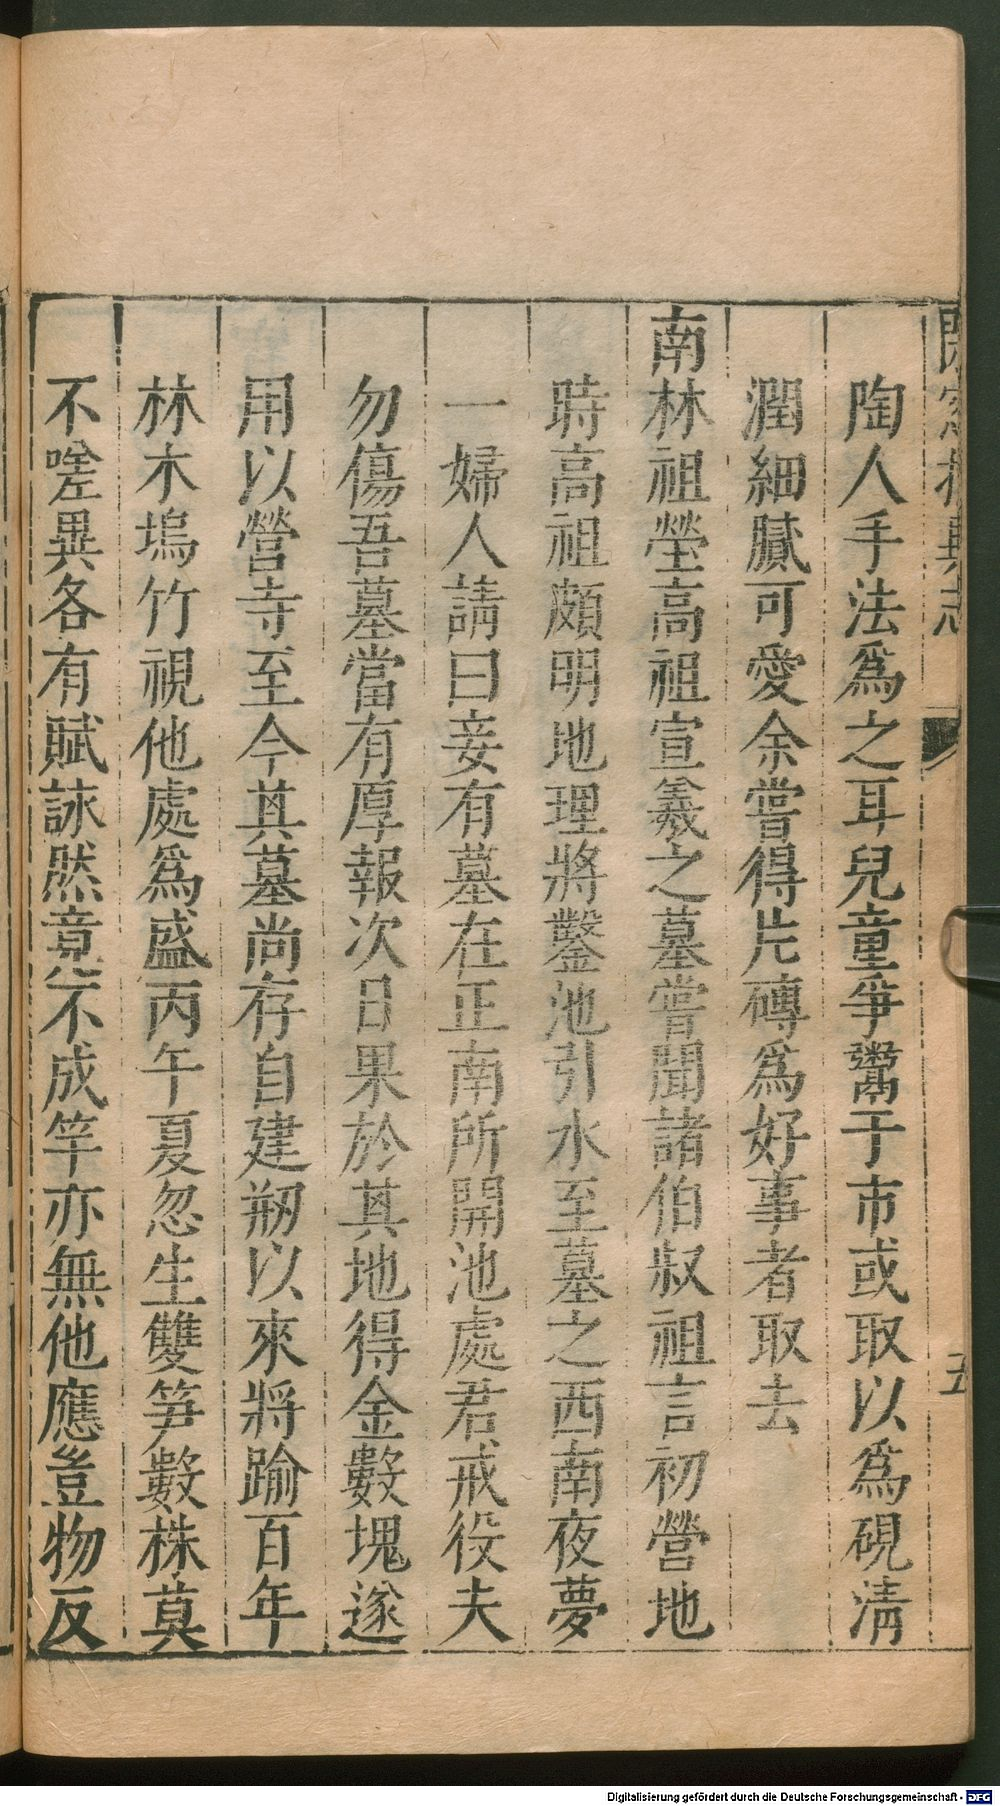 陶人手法爲之耳兒童爭鬻于市或取以爲硯清
潤細膩可愛余嘗得片磚爲好事者取去
南林祖塋高祖宣義之墓嘗聞諸伯叔祖言初營地
時高祖頗明地理將鑿池引水至墓之西南夜夢
一婦人請曰妾有墓在正南所開池處君戒役夫
勿傷吾墓當有厚報次日果於其地得金數塊遂
用以營寺至今其墓尚存自建剏以來將踰百年
林木塢竹視他處爲盛丙午夏忽生雙笋數株莫
不嗟異各有賦詠然竟不成竿亦無他應豈物反
五
Digitalisierung gefördert durch die Deutsche Forschungsgemeinschaft - DFG